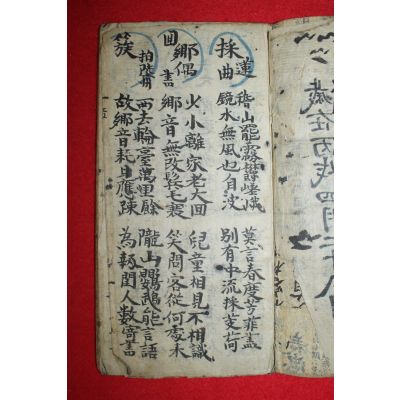 歲在丙戌
採蓮曲
稽山罷霧鬱嵯峨 莫言春度芳菲盡
鏡水無風也自波 別有中流採芰荷
回鄉偶書
少小離家老大回 兒童相見不相識
鄉音無改鬢毛衰 笑問客從何處来
簇拍陸州
西去輪臺萬里餘 隴山鸚鵡能言語
故鄉音耗日應疎 為報閨人數寄書